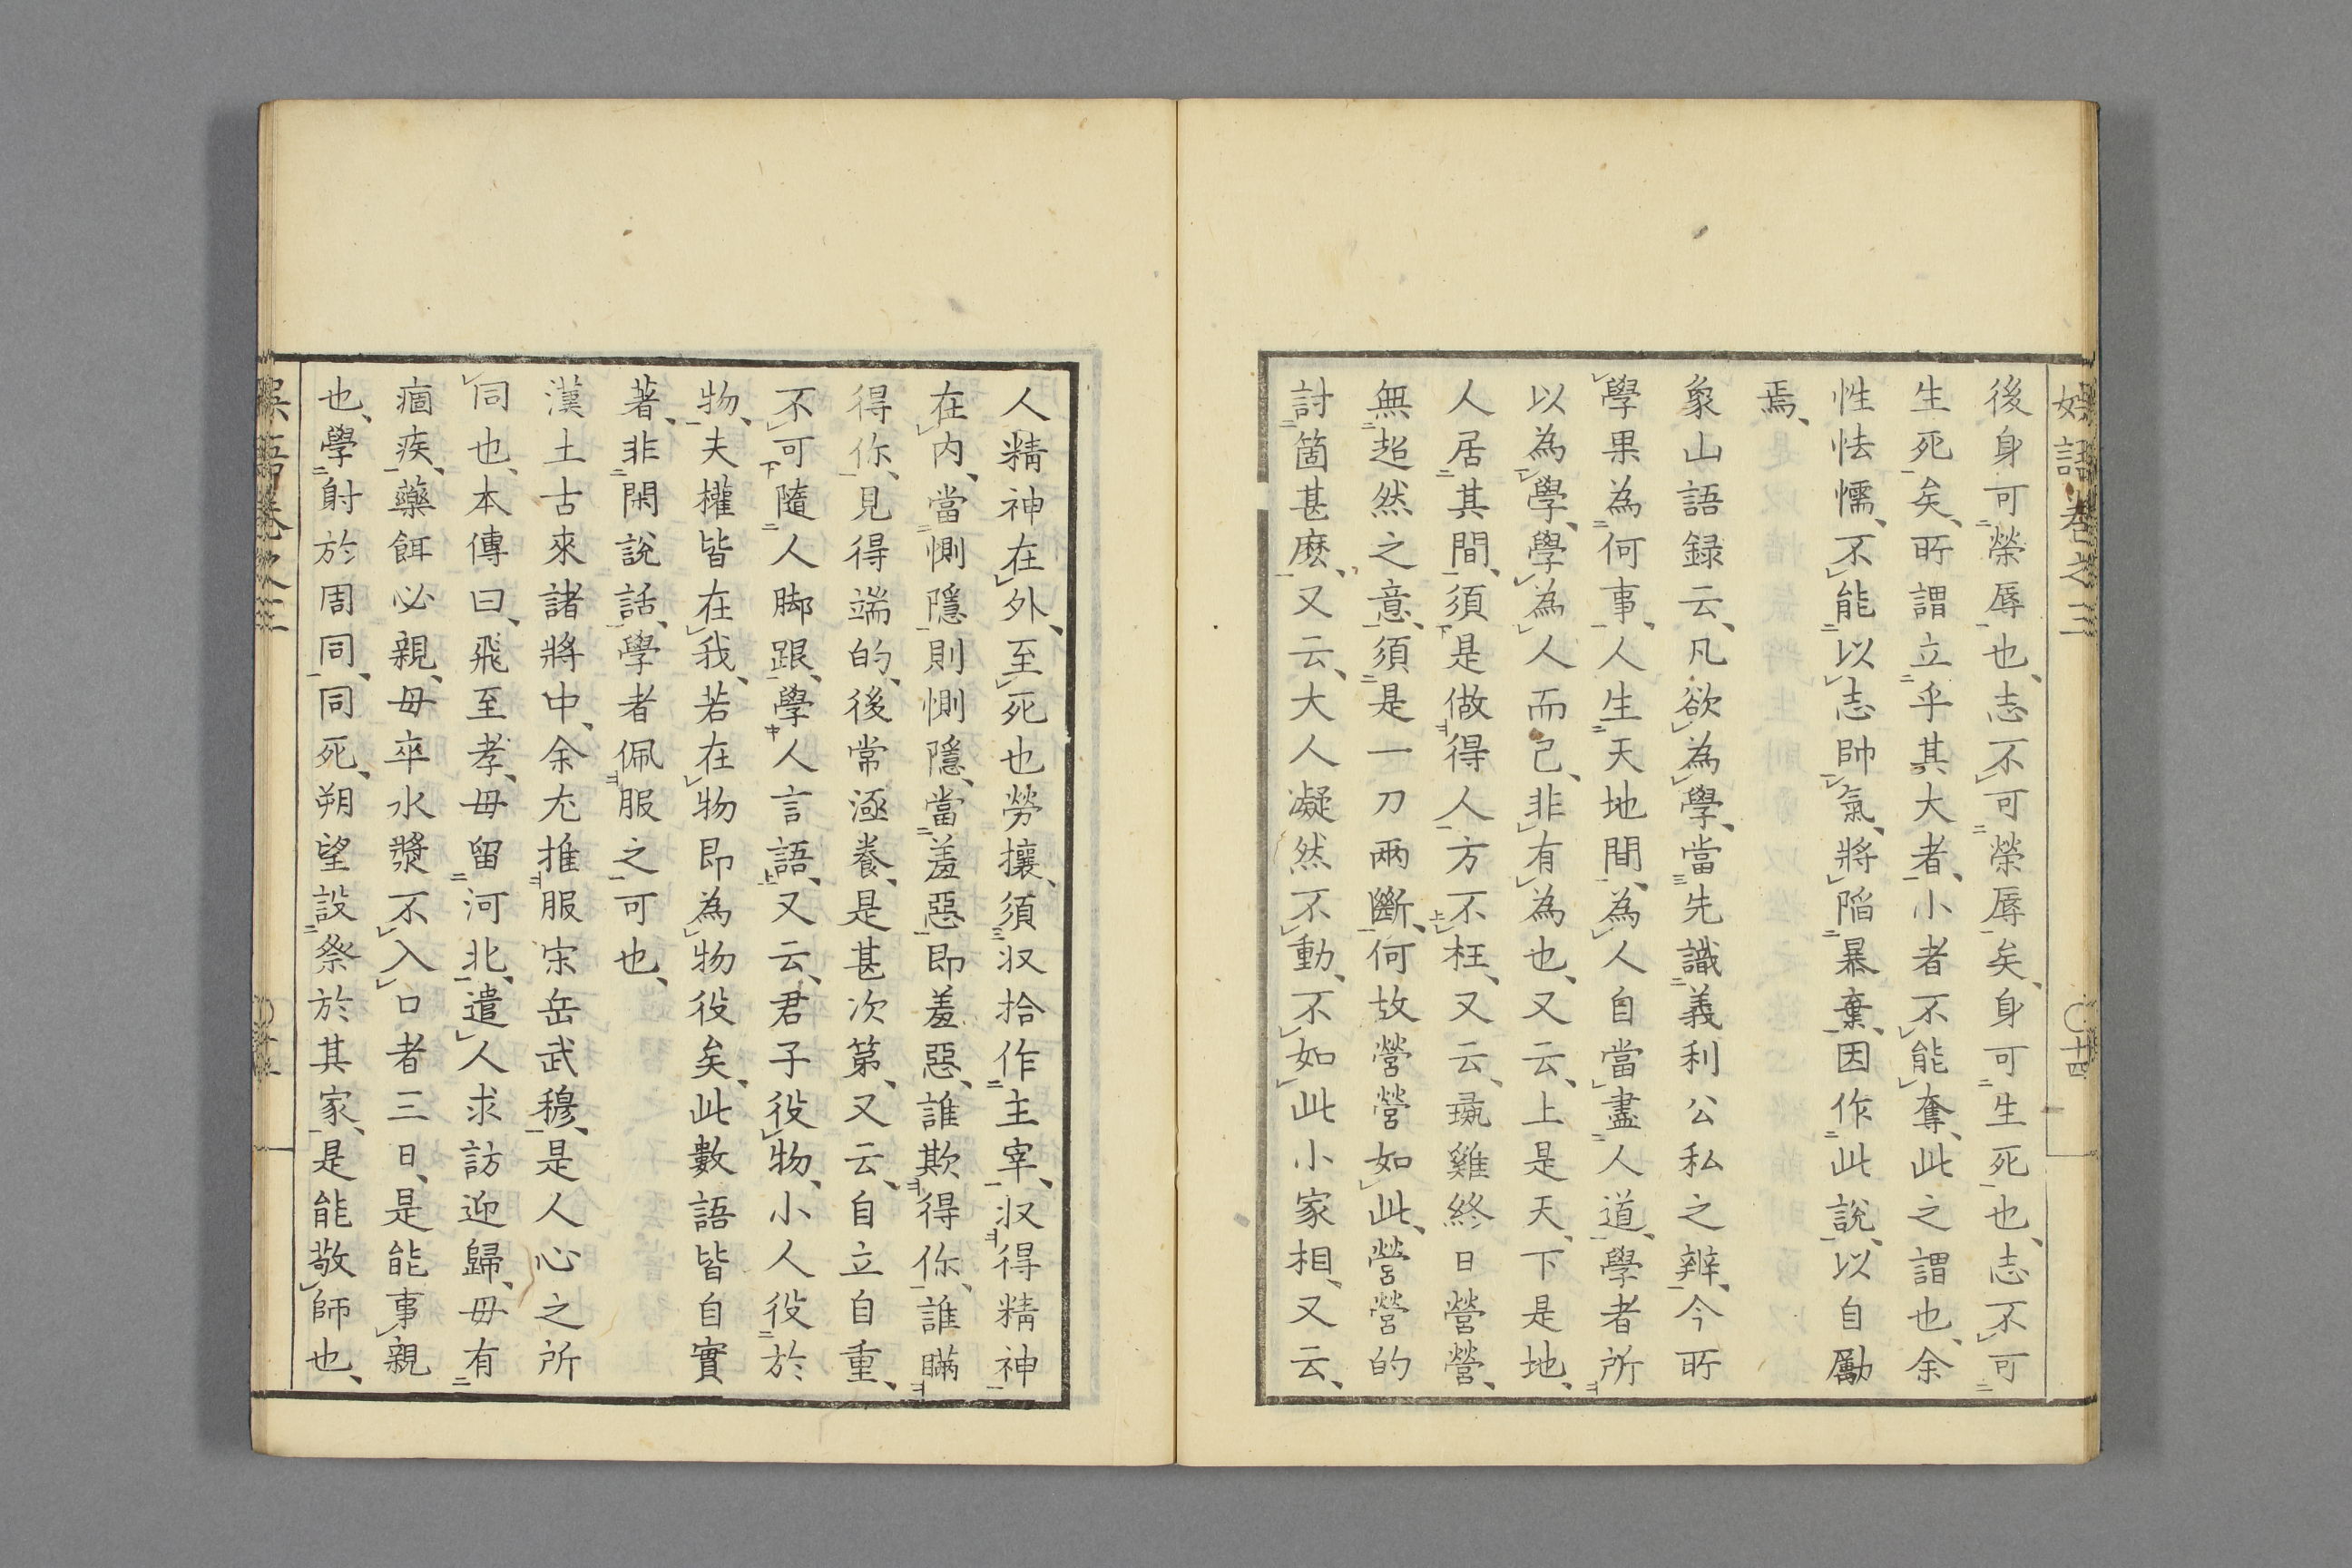 後身可榮辱也、志不可榮辱矣、身可生死也、志不可
生死矣、所謂立乎其大者、小者不能奪、此之謂也、余
性怯懦、不能以志帥氣、將陷暴棄、因作此說、以自勵
焉、
象山語録云、凡欲為學、當先識義利公私之辨、今所
學果為何事、人生天地間、為人自當盡人道、學者所
以為學、學為人而已、非有為也、又云、上是天、下是地、
人居其間、須是做得人方不枉、又云、彘雞終日營營、
無超然之意、須是一刀兩斷、何故營營如此、營營的
討箇甚麽、又云、大人凝然不動、不如此小家相、又云、
人精神在外、至死也勞攘、須収拾作主宰、収得精神
在内、當惻隱則惻隱、當羞惡即羞惡、誰欺得你、誰瞞
得你、見得端的、後常涵養、是甚次第、又云、自立自重、
不可隨人脚跟、學人言語、又云、君子役物、小人役於
物、夫權皆在我、若在物即為物役矣、此數語皆自實
著、非閑說話、學者佩服之可也、
漢土古來諸將中、余尤推服宋岳武穆、是人心之所
同也、本傳曰、飛至孝、毋留河北、遣人求訪迎歸、毋有
痼疾、藥餌必親、毋卒水漿不入口者三日、是能事親
也、學射於周同、同死、朔望設祭於其家、是能敬師也、